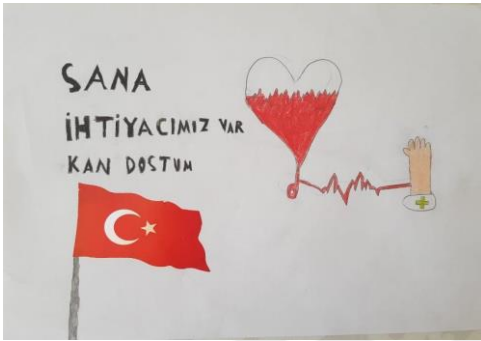 SANA
İHTİYACIMIZ VAR
KAN DOSTUM